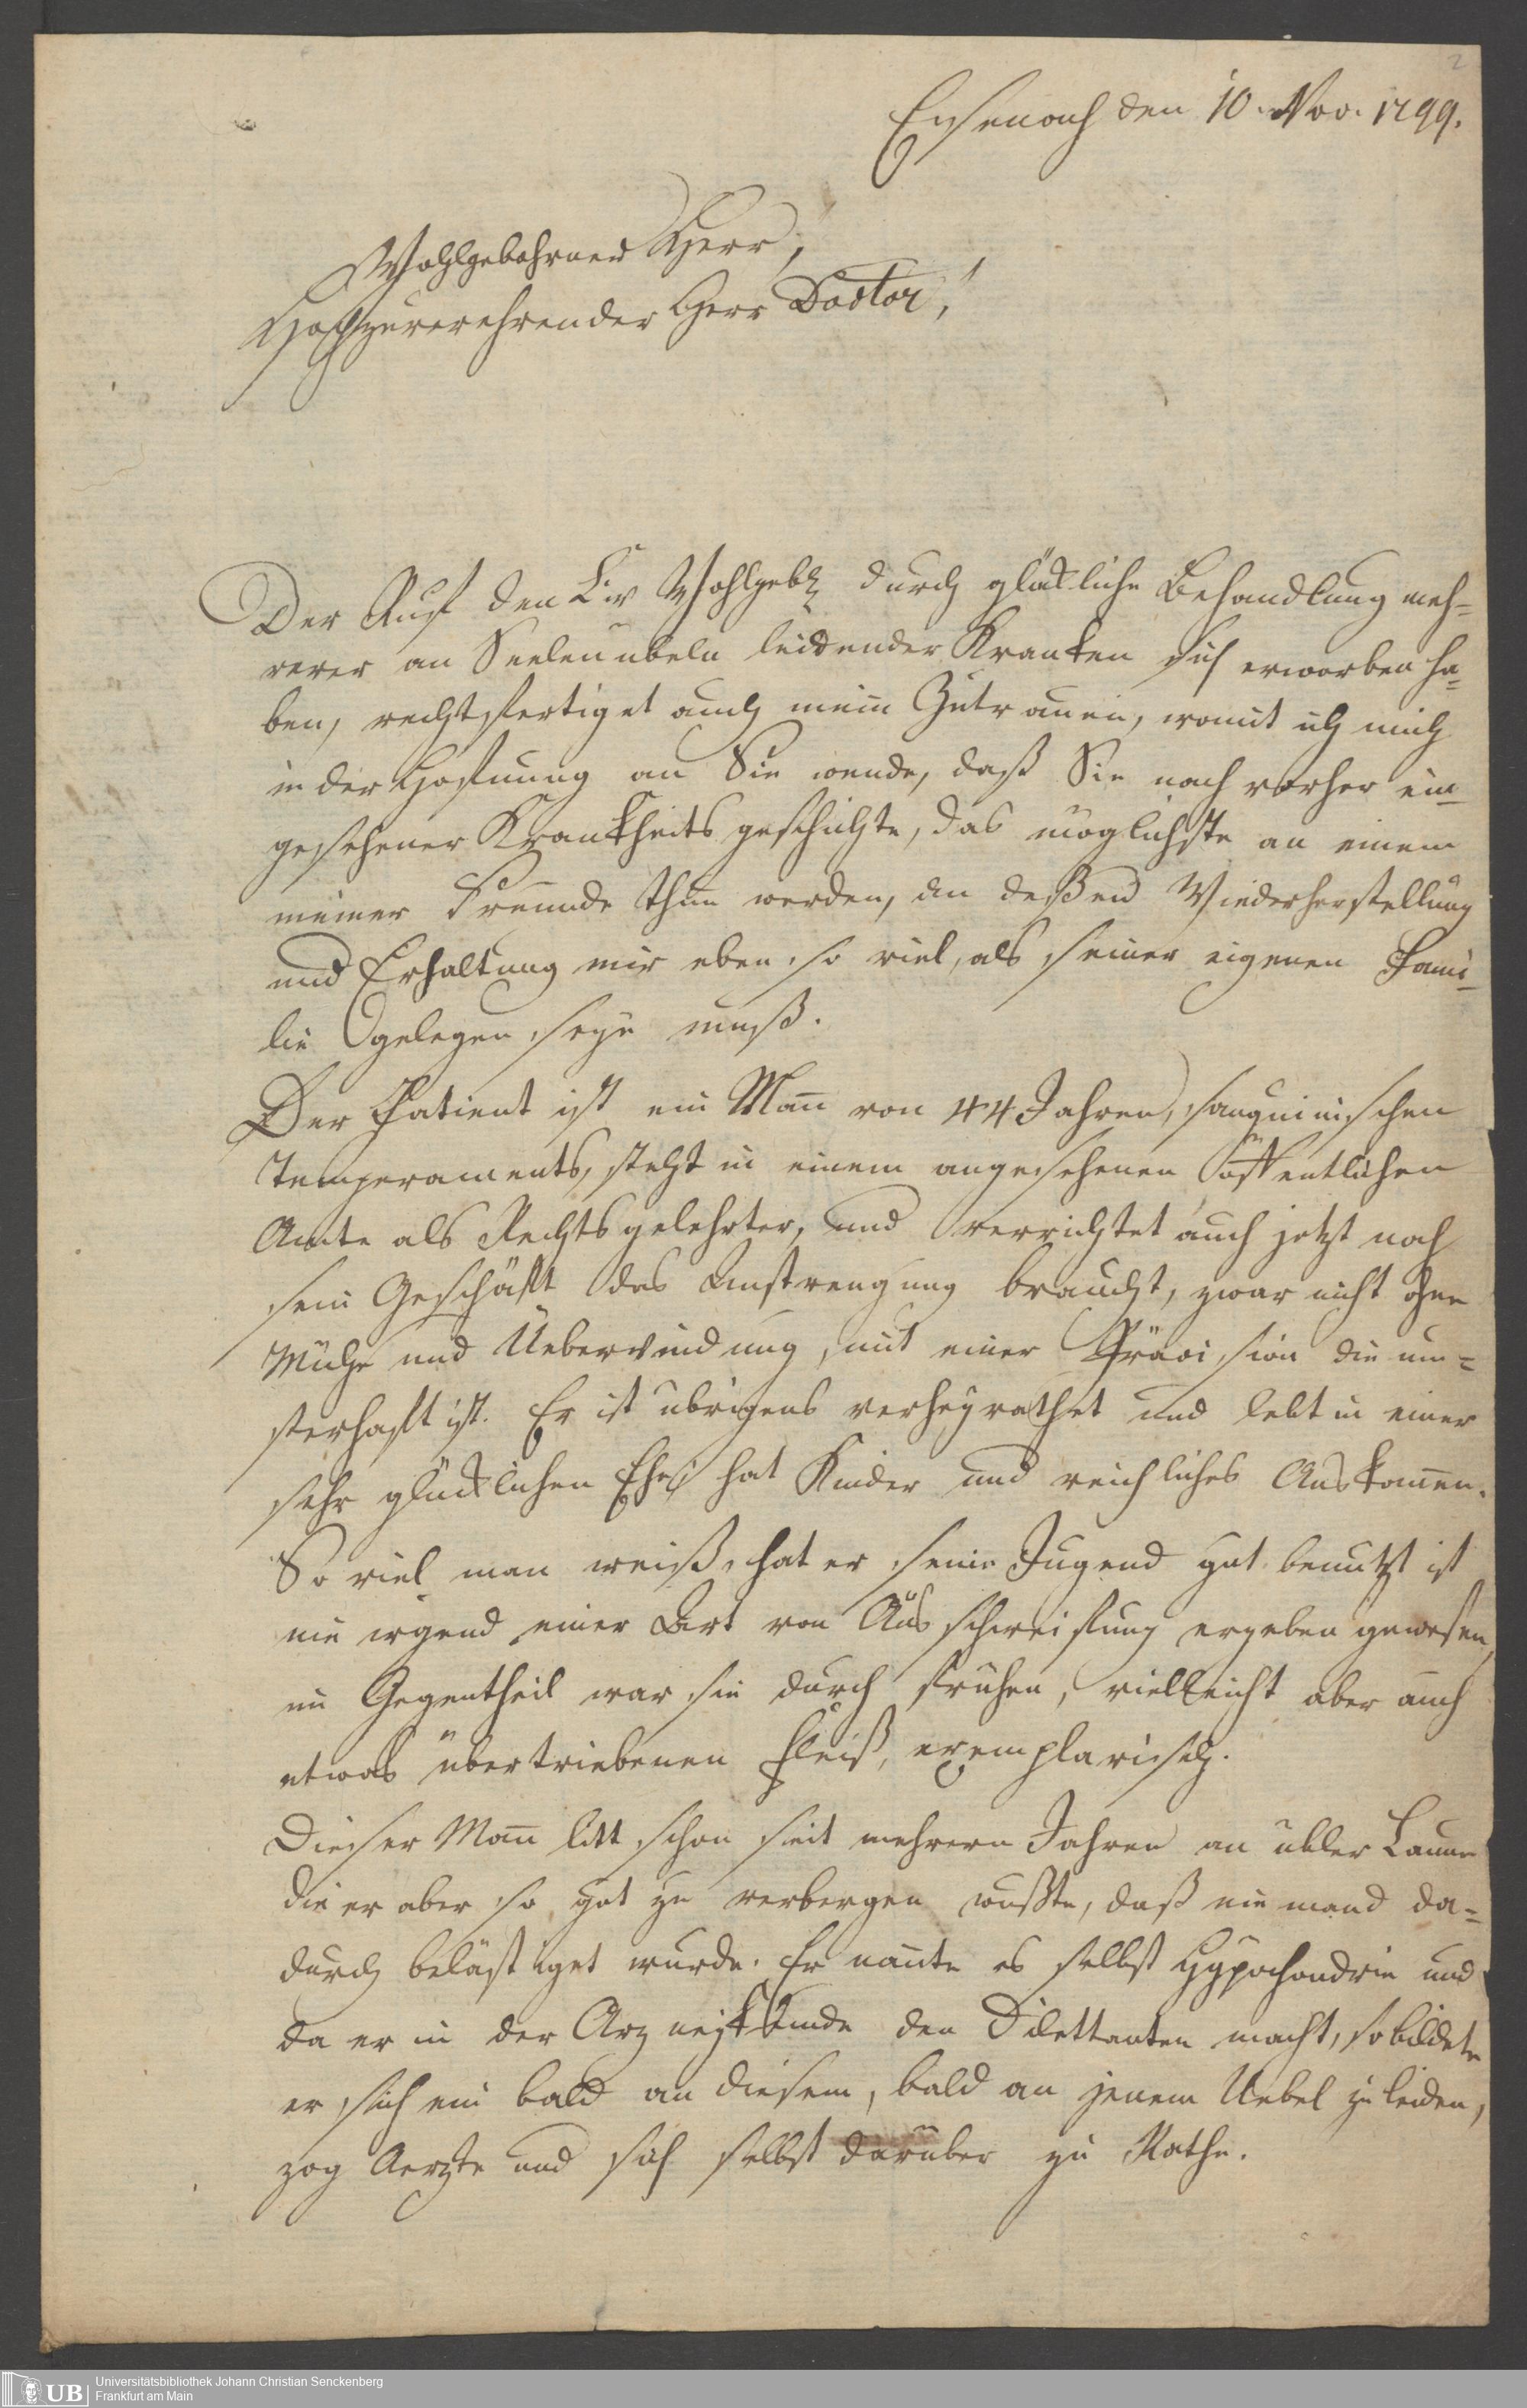 2
Eisenach den 10. Nov. 1799.
Wohlgebohrner Herr,
Hochzuverehrender Herr Doctor!
Der Ruf den Ew Wohlgeb durch glückliche Behandlung meh=
rerer an Seelenübeln leidender Kranken sich erworben ha=
ben, rechtfertiget auch mein Zutrauen, womit ich mich
in der Hofnung an Sie wende, daß Sie nach vorher ein=
gesehener Krankheitsgeschichte, das möglichste an einem
meiner Freunde thun werden, an deßen Wiederherstellung
und Erhaltung mir eben so viel, als seiner eigenen Fami=
lie gelegen seyn muß.
Der Patient ist ein Mann von 44 Jahren, sanguinischen
Temperaments, steht in einem angesehenen öffentlichen
Amte als Rechtsgelehrter, und verrichtet auch jetzt noch
sein Geschäft das Anstrengung braucht, zwar nicht ohne
Mühe und Ueberwindung, mit einer Präcision die mu=
sterhaft ist. Er ist übrigens verheyrathet und lebt in einer
sehr glücklichen Ehe, hat Kinder und reichliches Auskommen.
So viel man weiß, hat er seine Jugend gut benutzt ist
nie irgend einer Art von Ausschweifung ergeben gewesen,
im Gegentheil war sie durch frühen, vielleicht aber auch
etwas übertriebenen Fleiß, exemplarisch.
Dieser Mann litt schon seit mehrern Jahren an übler Laune
die er aber so gut zu verbergen wußte, daß niemand da=
durch belästiget wurde. Er nannte es selbst Hypochondrie und
da er in der Arzneykunde den Dilettanten macht, so bildete
er sich ein bald an diesem, bald an jenem Uebel zu leiden,
zog Aerzte und sich selbst darüber zu Rathe.
UB
Universitätsbibliothek Johann Christian Senckenberg
Frankfurt am Main